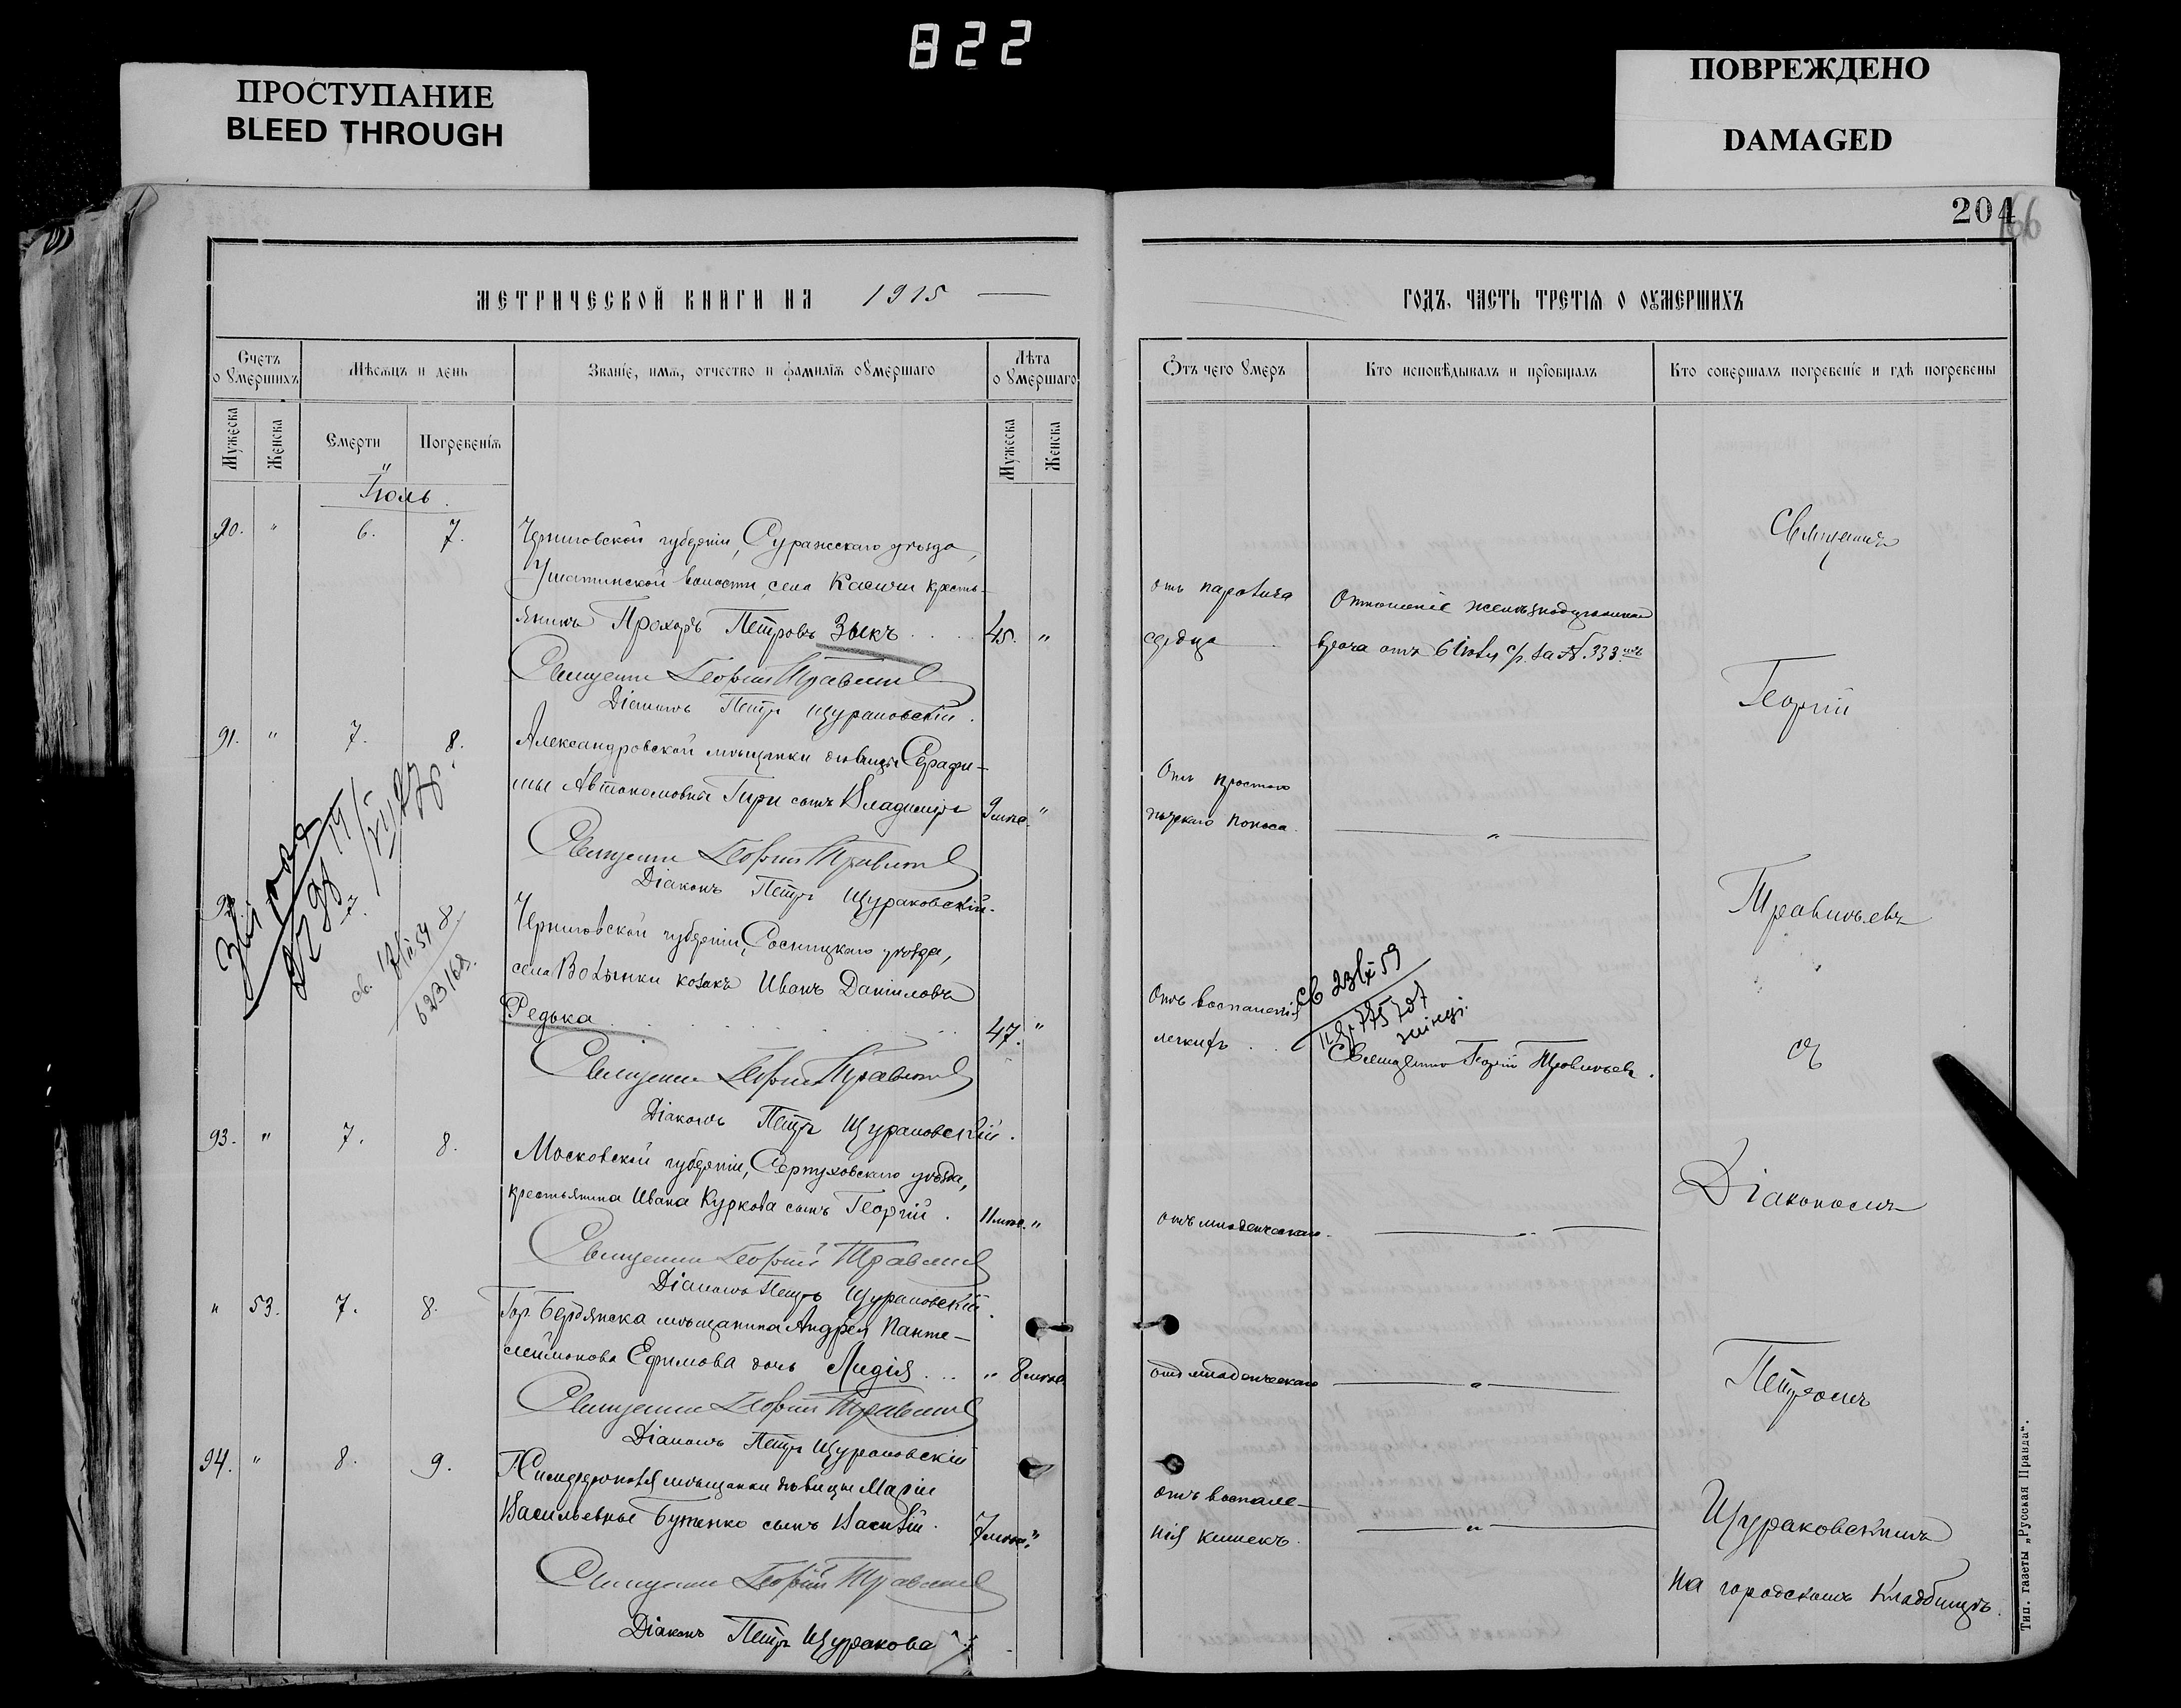 822
ПРОСТУПАНИЕ
BLEED THROUGH
ПОВРЕЖДЕНО
DAMAGED
204
166
МЕТРИЧЕСКОЙ КНИГИ НА 1915
ГОДЪ, ЧАСТЬ ТРЕТІЯ О ОУМЕРШИХЪ
Счетъ о Умершихъ
Мѣсяцъ и день
Званіе, имя, отчество и фамилія оумершаго
Лѣта о Умершаго
Отъ чего Умеръ
Кто исповѣдывалъ и пріобщалъ
Кто совершалъ погребеніе и гдѣ погребены
Мужеска
Женска
Смерти
Погребенія
Мужеска
Женска
Іюль.
90. " 6. 7.
Черниговской губерніи, Суражскаго уѣзда,
волости, села крестъ-
янинъ Прохоръ Петровъ Зыкъ 45. "
отъ паролича
сердца
Отношеніе желѣзнодорожнаго
врача отъ 6 Іюля с/г. за №. 333
Священникъ Георгій
Діаконъ Петръ Щураковскій.
91. " 7. 8.
Александровской мѣщанки дѣвицы Серафи-
мы Автономовны Гири сынъ Владиміръ 9 мѣс. "
Отъ простого
дѣтскаго поноса.
Священникъ Георгій
Діаконъ Петръ Щураковскій.
92. 7. 8.
Черниговской губерніи, Сосницкаго уѣзда,
села Волынки козакъ Иванъ Даніиловъ
Редька 47. "
Отъ воспаленія
легкихъ
св 23/IX 59
Священникъ Георгій Травиньевъ.
св. 54
623/168.
Священникъ Георгій
Діаконъ Петръ Щураковскій.
93. " 7. 8.
Московской губерніи, Серпуховскаго уѣзда,
крестьянина Ивана Куркова сынъ Георгій. 11 мѣс. "
отъ младенческаго
Священникъ Георгій
Діаконъ Петръ Щураковскій.
" 53. 7. 8.
Гор. Бердянска мѣщанина Андрея Панте-
леймонова Ефимова дочь Лидія " 8 мѣс.
отъ младенческаго
Священникъ Георгій
Діаконъ Петръ Щураковскій
94. " 8. 9.
мѣщанки дѣвицы Маріи
Васильевны Бутенко сынъ Василій. 7 мѣс. "
отъ воспале-
нія кишекъ.
Священникъ Георгій
Діаконъ Петръ Щураковс
Священникъ
Георгій
Травиньевъ
съ
Діакономъ
Петромъ
Щураковскимъ
на городскомъ кладбищѣ.
Тип. газеты „Русская Правда".